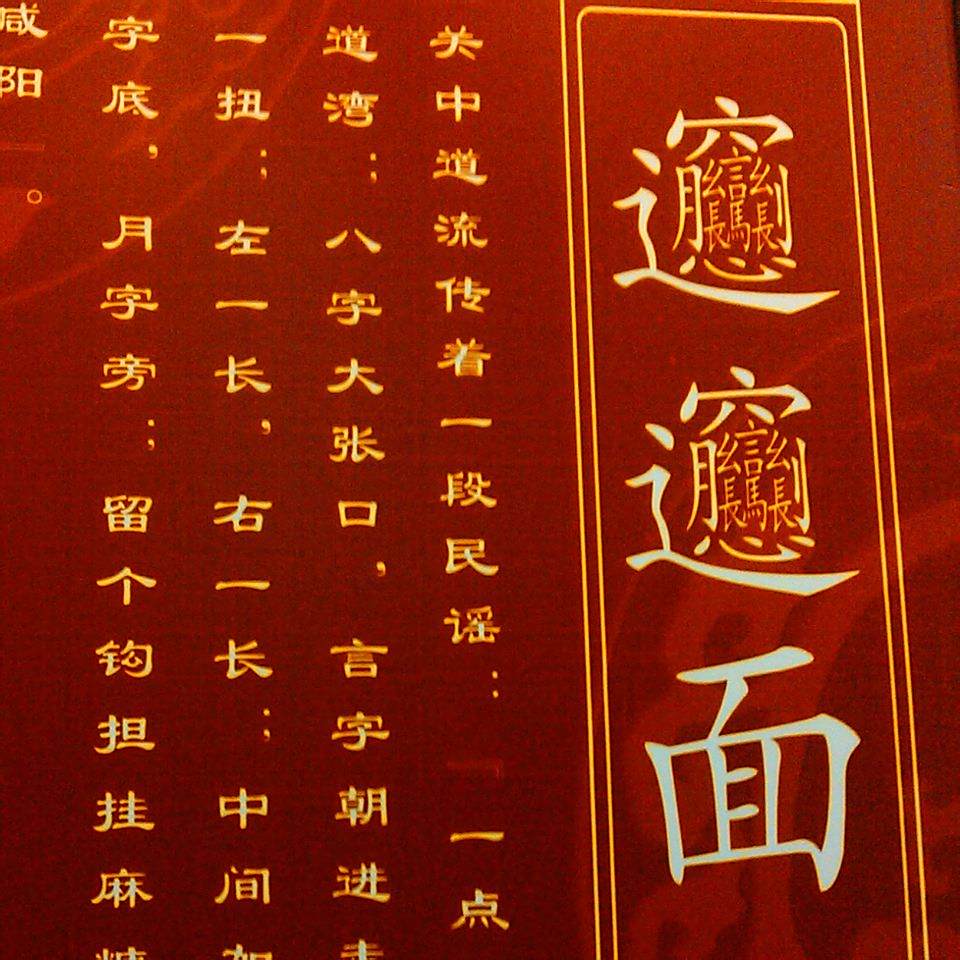 𰻞𰻞面
关中道流传着一段民谣：「一点
道湾；八字大张口，言字朝进
一扭；左一长，右一长；中间
字底，月字旁；留个钩担挂麻
咸阳」。